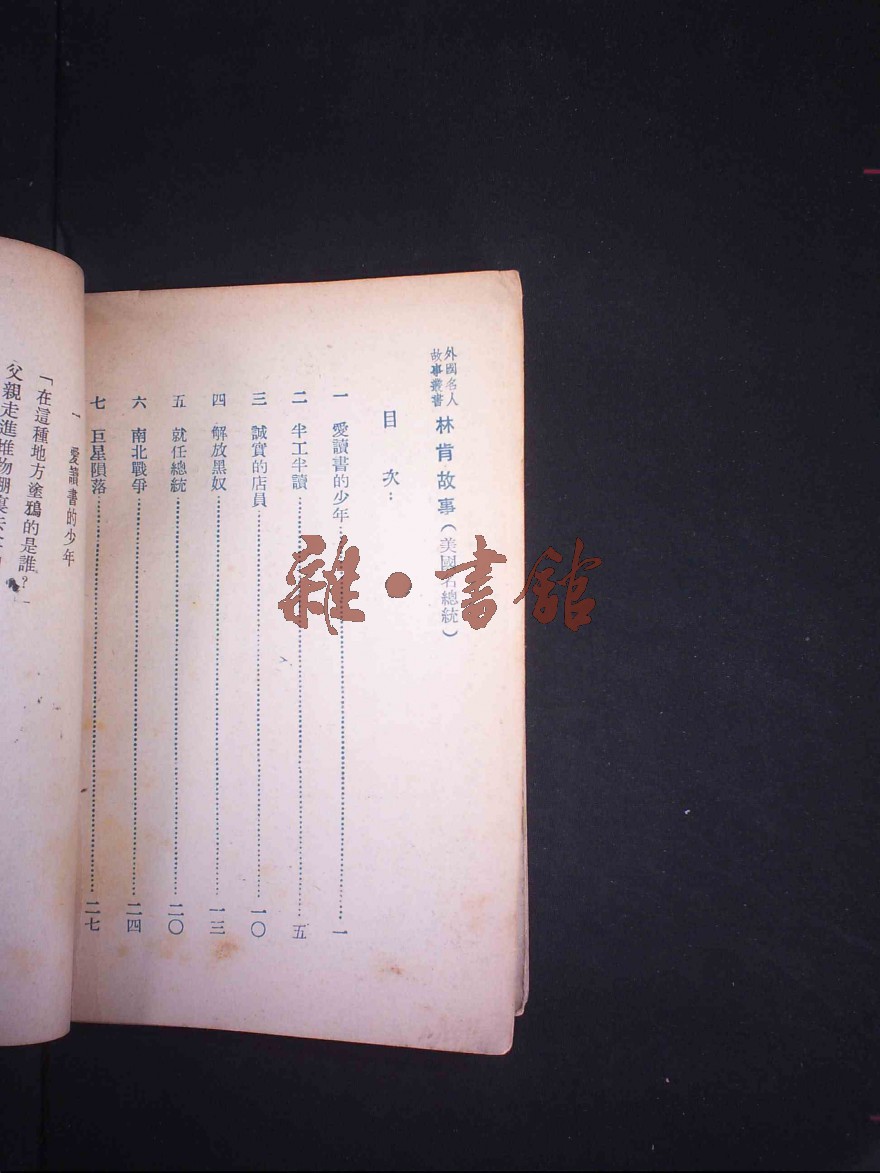 外國名人故事叢書 林肯故事（美國名總統）
目次：
一 愛讀書的少年…一
二 半工半讀…五
三 誠實的店員…一〇
四 解放黑奴…一三
五 就任總統…二〇
六 南北戰爭…二四
七 巨星隕落…二七
一 愛讀書的少年
「在這種地方塗鴉的是誰？」
父親走進堆物棚裏去
雜・書館